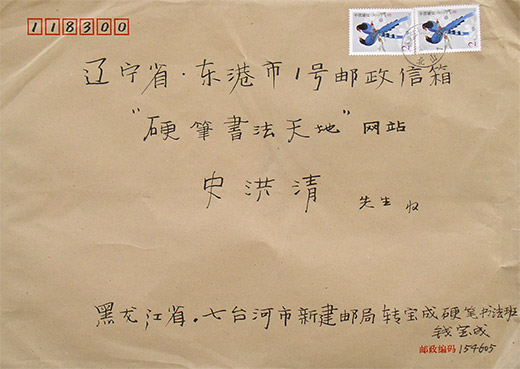 118300
辽宁省·东港市1号邮政信箱
"硬筆書法天地"网站
史洪清 先生 收
黑龙江省·七台河市新建邮局转宝成硬笔书法班
钱宝成
邮政编码 154605